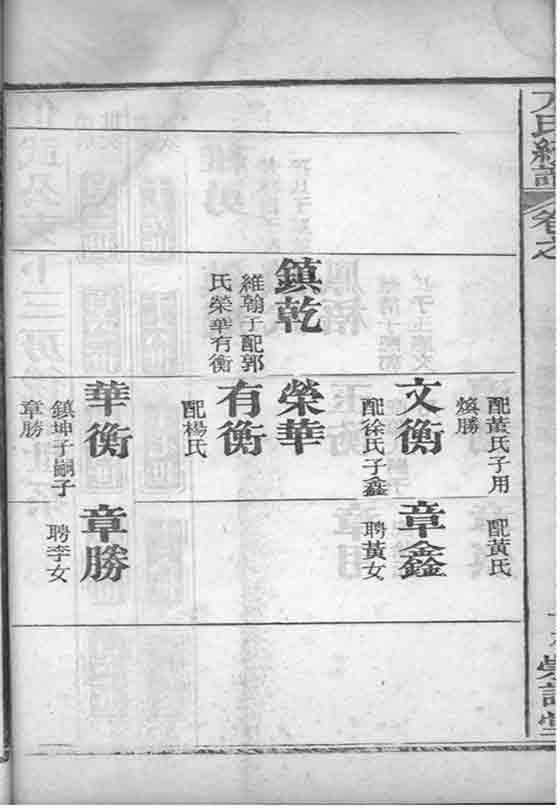 鎮乾
維翰子配郭
氏榮華有衡
配黃氏子用
煥勝
文衡
配徐氏子鑫
榮華
有衡
配楊氏
華衡
鎮坤子嗣子
章勝
配黃氏
章鑫
聘黃女
章勝
聘李女